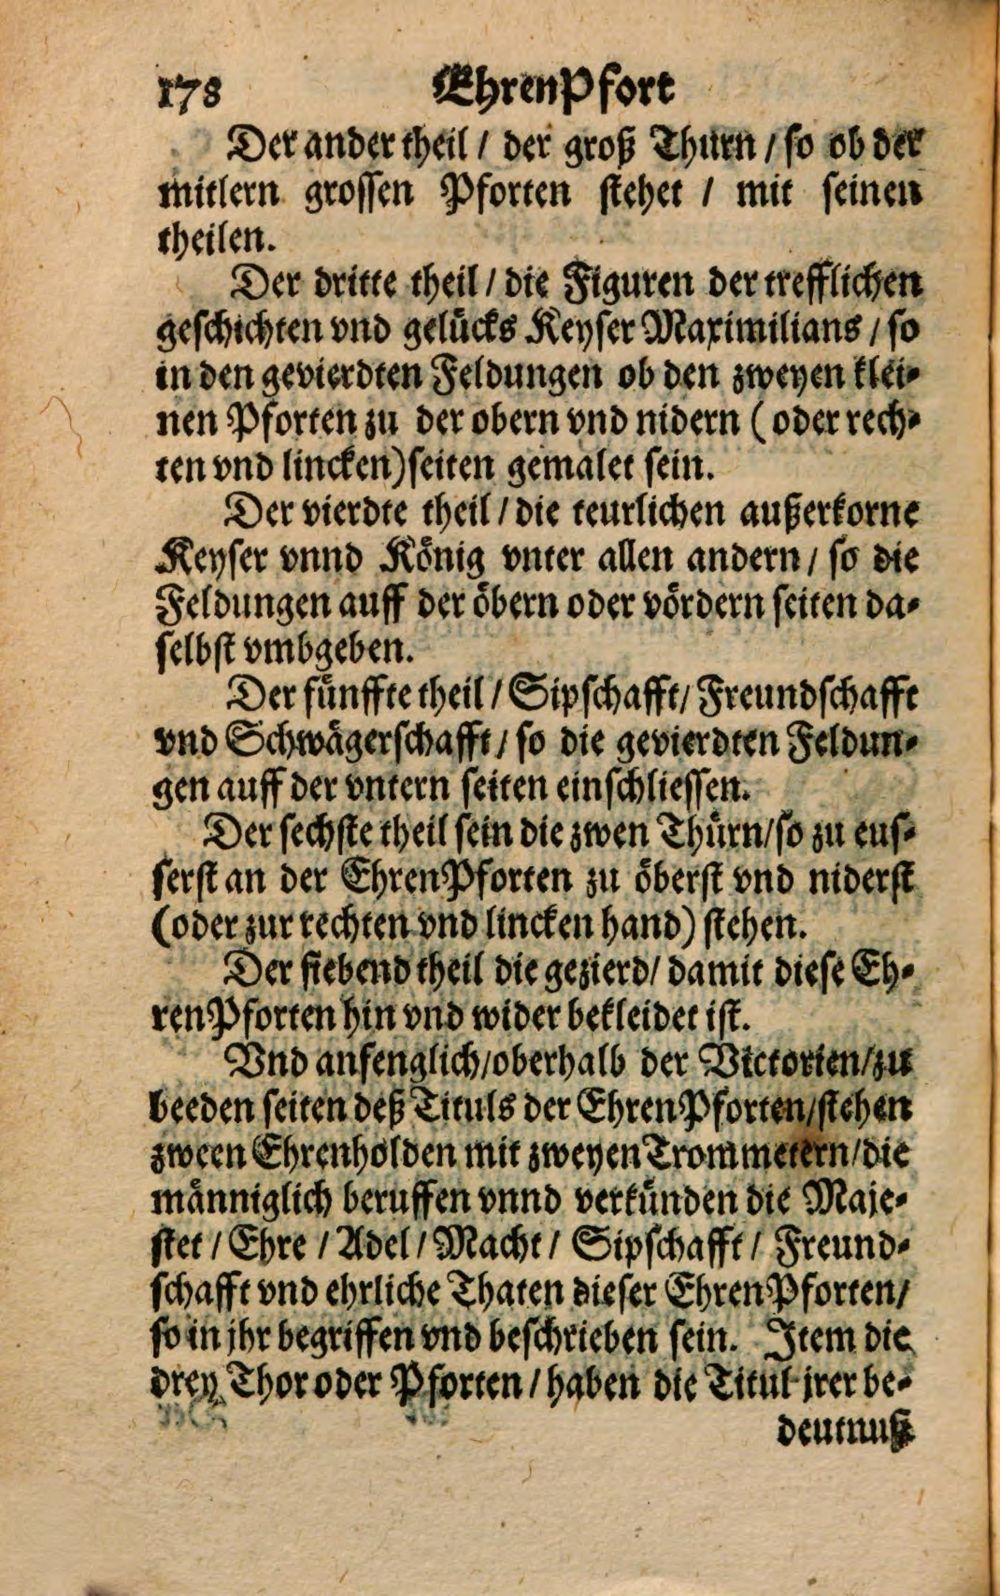 178 EhrenPfort
Der ander theil / der groß Thurn / so ob der
mitlern grossen Pforten stehet / mit seinen
theilen.
Der dritte theil / die Figuren der trefflichen
geschichten vnd gelücks Keyser Maximilians / so
in den gevierdten Feldungen ob den zweyen klei-
nen Pforten zu der obern vnd nidern (oder rech-
ten vnd lincken) seiten gemalet sein.
Der vierdte theil / die teurlichen außerkorne
Keyser vnnd König vnter allen andern / so die
Feldungen auff der öbern oder vördern seiten da-
selbst vmbgeben.
Der fünffte theil / Sipschafft / Freundschafft
vnd Schwägerschafft / so die gevierdten Feldun-
gen auff der vntern seiten einschliessen.
Der sechste theil sein die zwen Thürn / so zu eus-
serst an der EhrenPforten zu öberst vnd niderst
(oder zur rechten vnd lincken hand) stehen.
Der siebend theil die gezierd / damit diese Eh-
renPforten hin vnd wider bekleidet ist.
Vnd anfenglich / oberhalb der Victorien / zu
beeden seiten deß Tituls der EhrenPforten / stehen
zween Ehrenholden mit zweyen Trommetern / die
männiglich beruffen vnnd verkünden die Maje-
stet / Ehre / Adel / Macht / Sipschafft / Freund-
schafft vnd ehrliche Thaten dieser EhrenPforten /
so in jhr begriffen vnd beschrieben sein. Item die
drey Thor oder Pforten / haben die Titul jrer be-
deutnuß